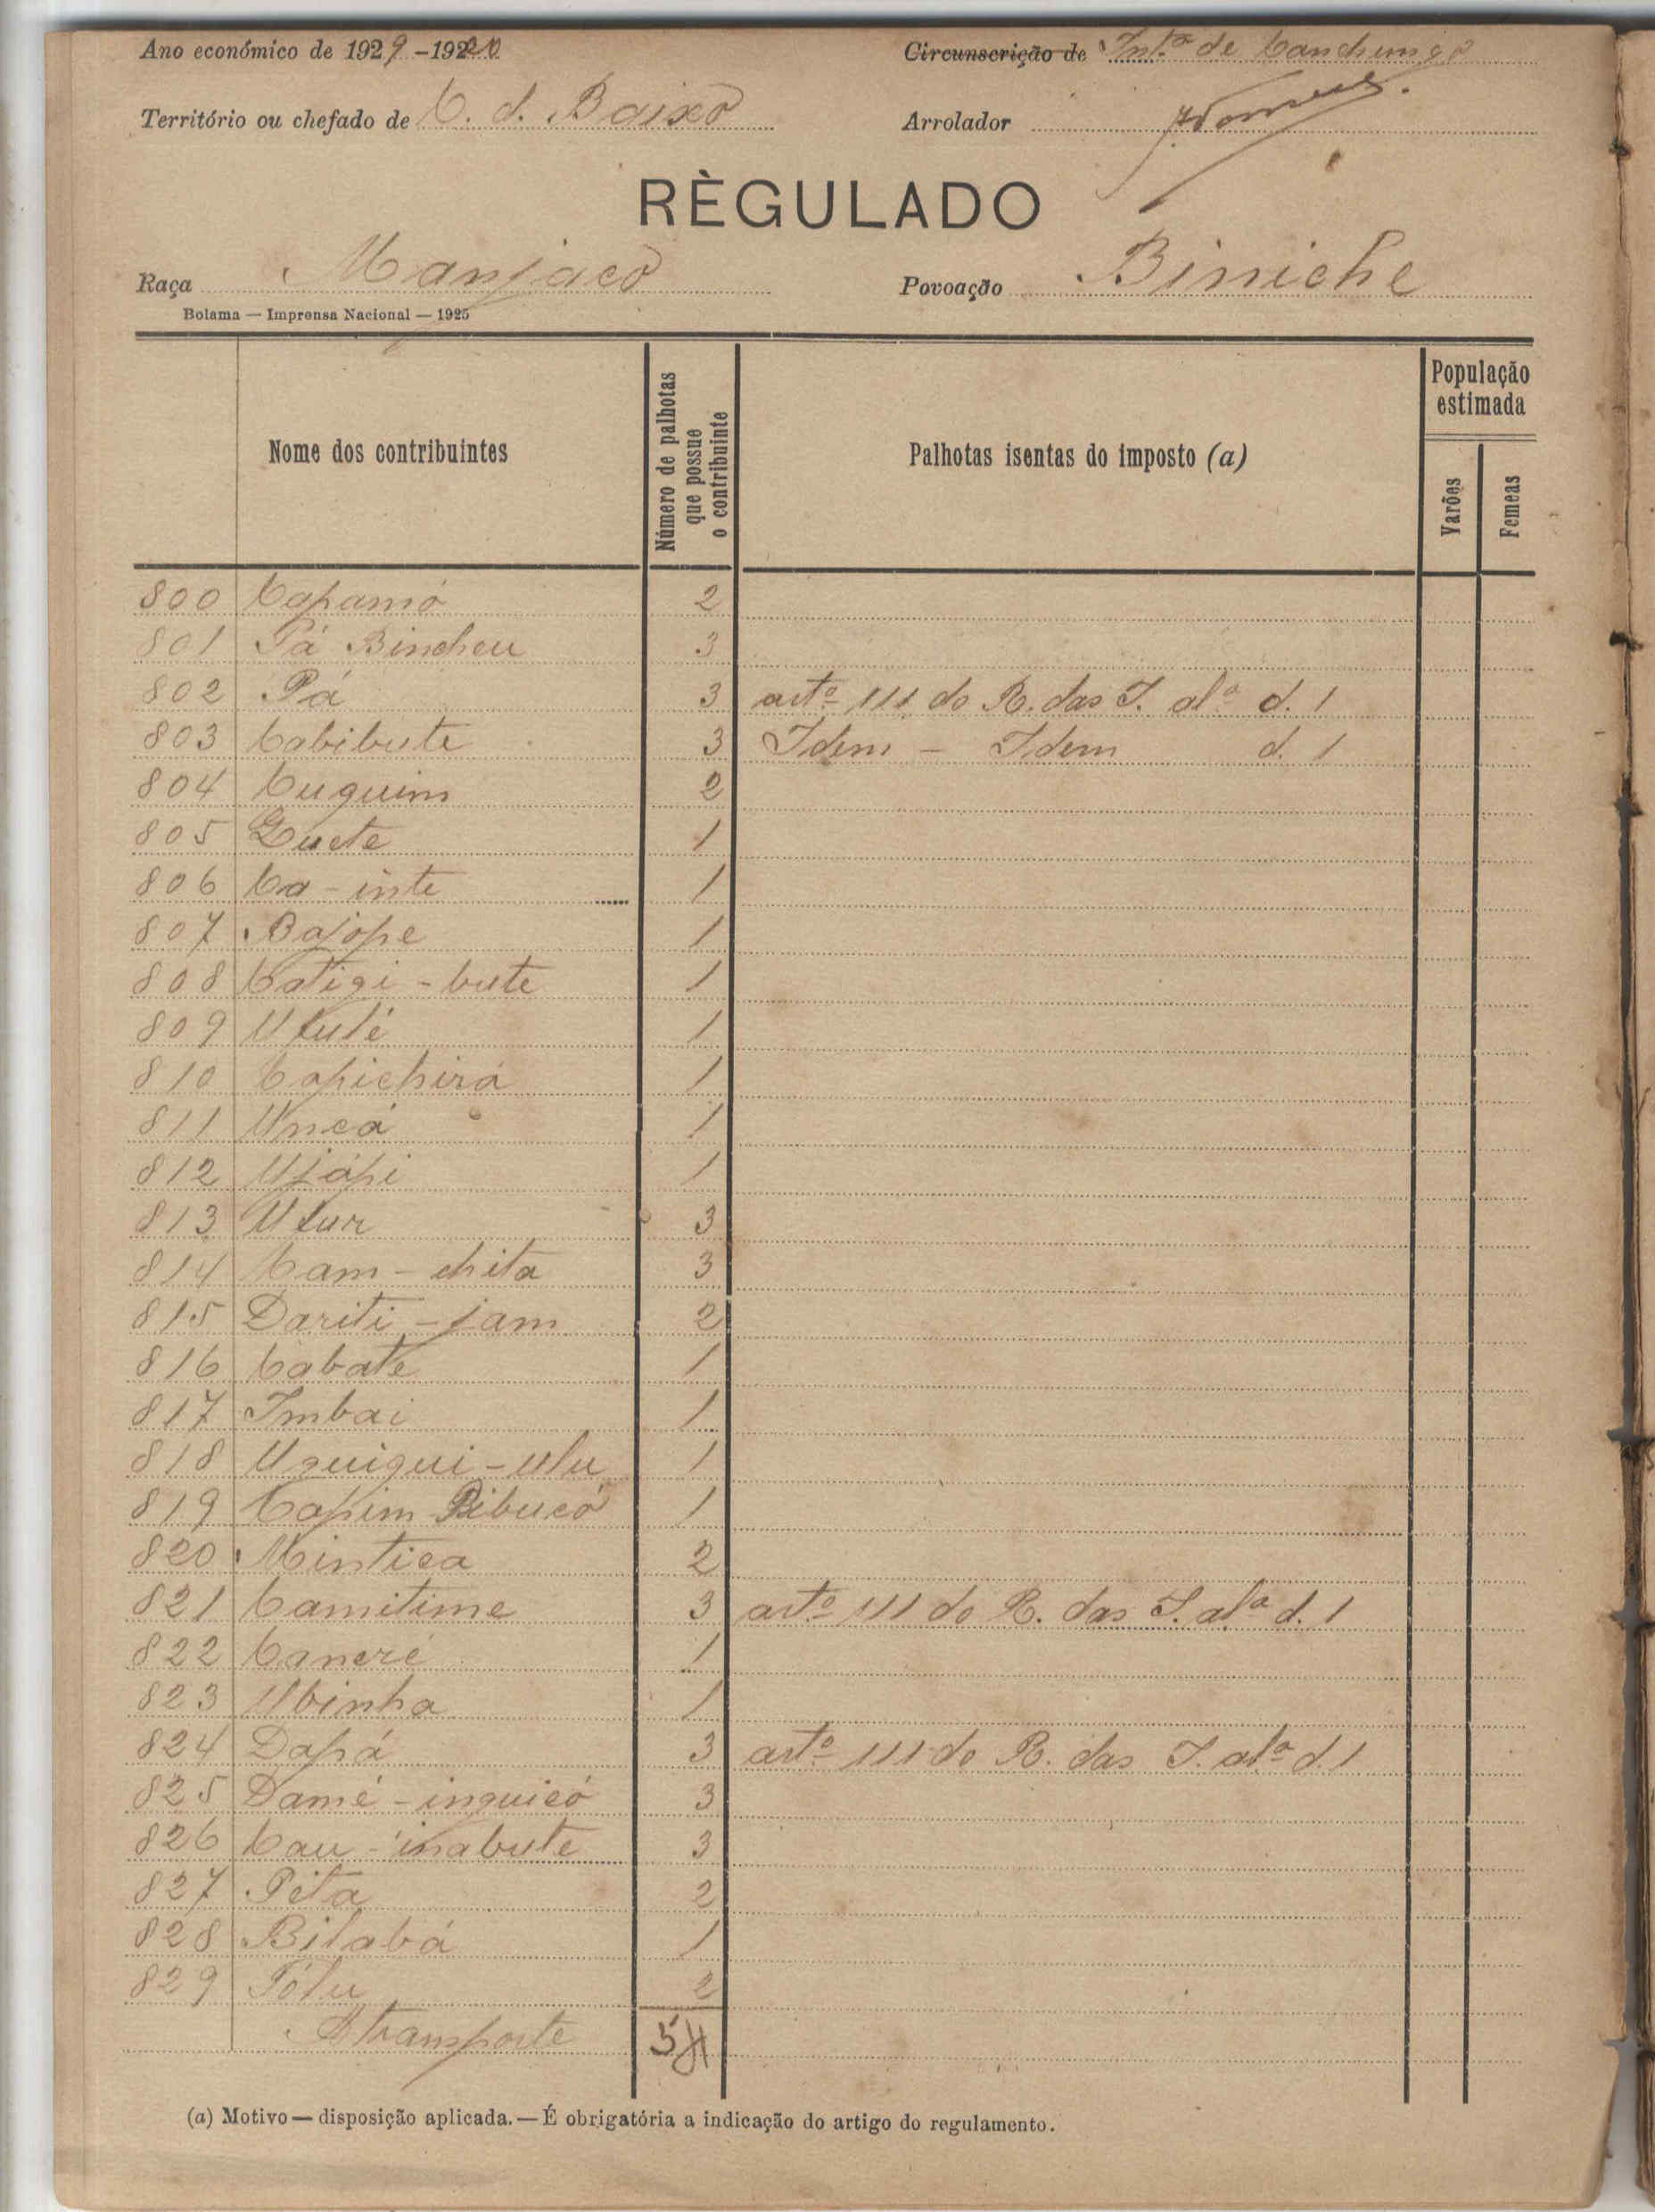 Ano económico de 1929-1920
Circunscrição de Int.ª de Canchungo
Território ou chefado de C. d. Baixo
Arrolador
RÈGULADO
Raça Manjaco
Povoação Biniche
Bolama — Imprensa Nacional — 1925
Nome dos contribuintes
Número de palhotas que possue o contribuinte
Palhotas isentas do imposto (a)
População estimada
Varões
Femeas
800 Capamó 2
801 Pá Bincheu 3
802 Pá 3 artº 111 do R. das I. alª d. 1
803 Cabibute 3 Idem - Idem d. 1
804 Cuguim 2
805 Duete 1
806 Ca-inte 1
807 Bajope 1
808 Catigi-bute 1
809 Utulé 1
810 Capichirá 1
811 Uncá 1
812 Ujópi 1
813 Utur 3
814 Cam-chita 3
815 Dariti-jam 2
816 Cabate 1
817 Imbai 1
818 Uguigui-ulu 1
819 Capim Bibucó 1
820 Mintica 2
821 Camitime 3 artº 111 do R. das I. alª d. 1
822 Cancré 1
823 Ubinha 1
824 Dapá 3 artº 111 do R. das I. alª d. 1
825 Damé-inguicó 3
826 Cau-inabute 3
827 Pita 2
828 Bilabá 1
829 Tólu 2
A transporte 51
(a) Motivo — disposição aplicada. — É obrigatória a indicação do artigo do regulamento.